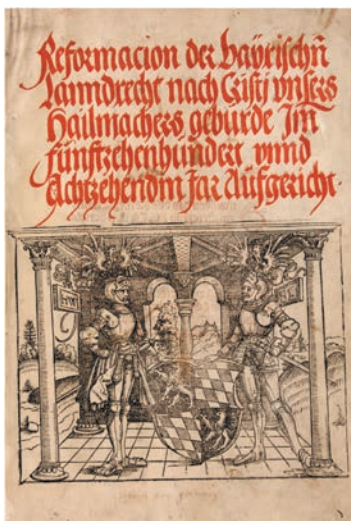 Reformacion der bayrischn̄
Lanndrecht nach Cristi vnsers
Hailmachers geburde Im
fünftzehenhundert vnnd
Achtzehendm Jar Aufgericht.